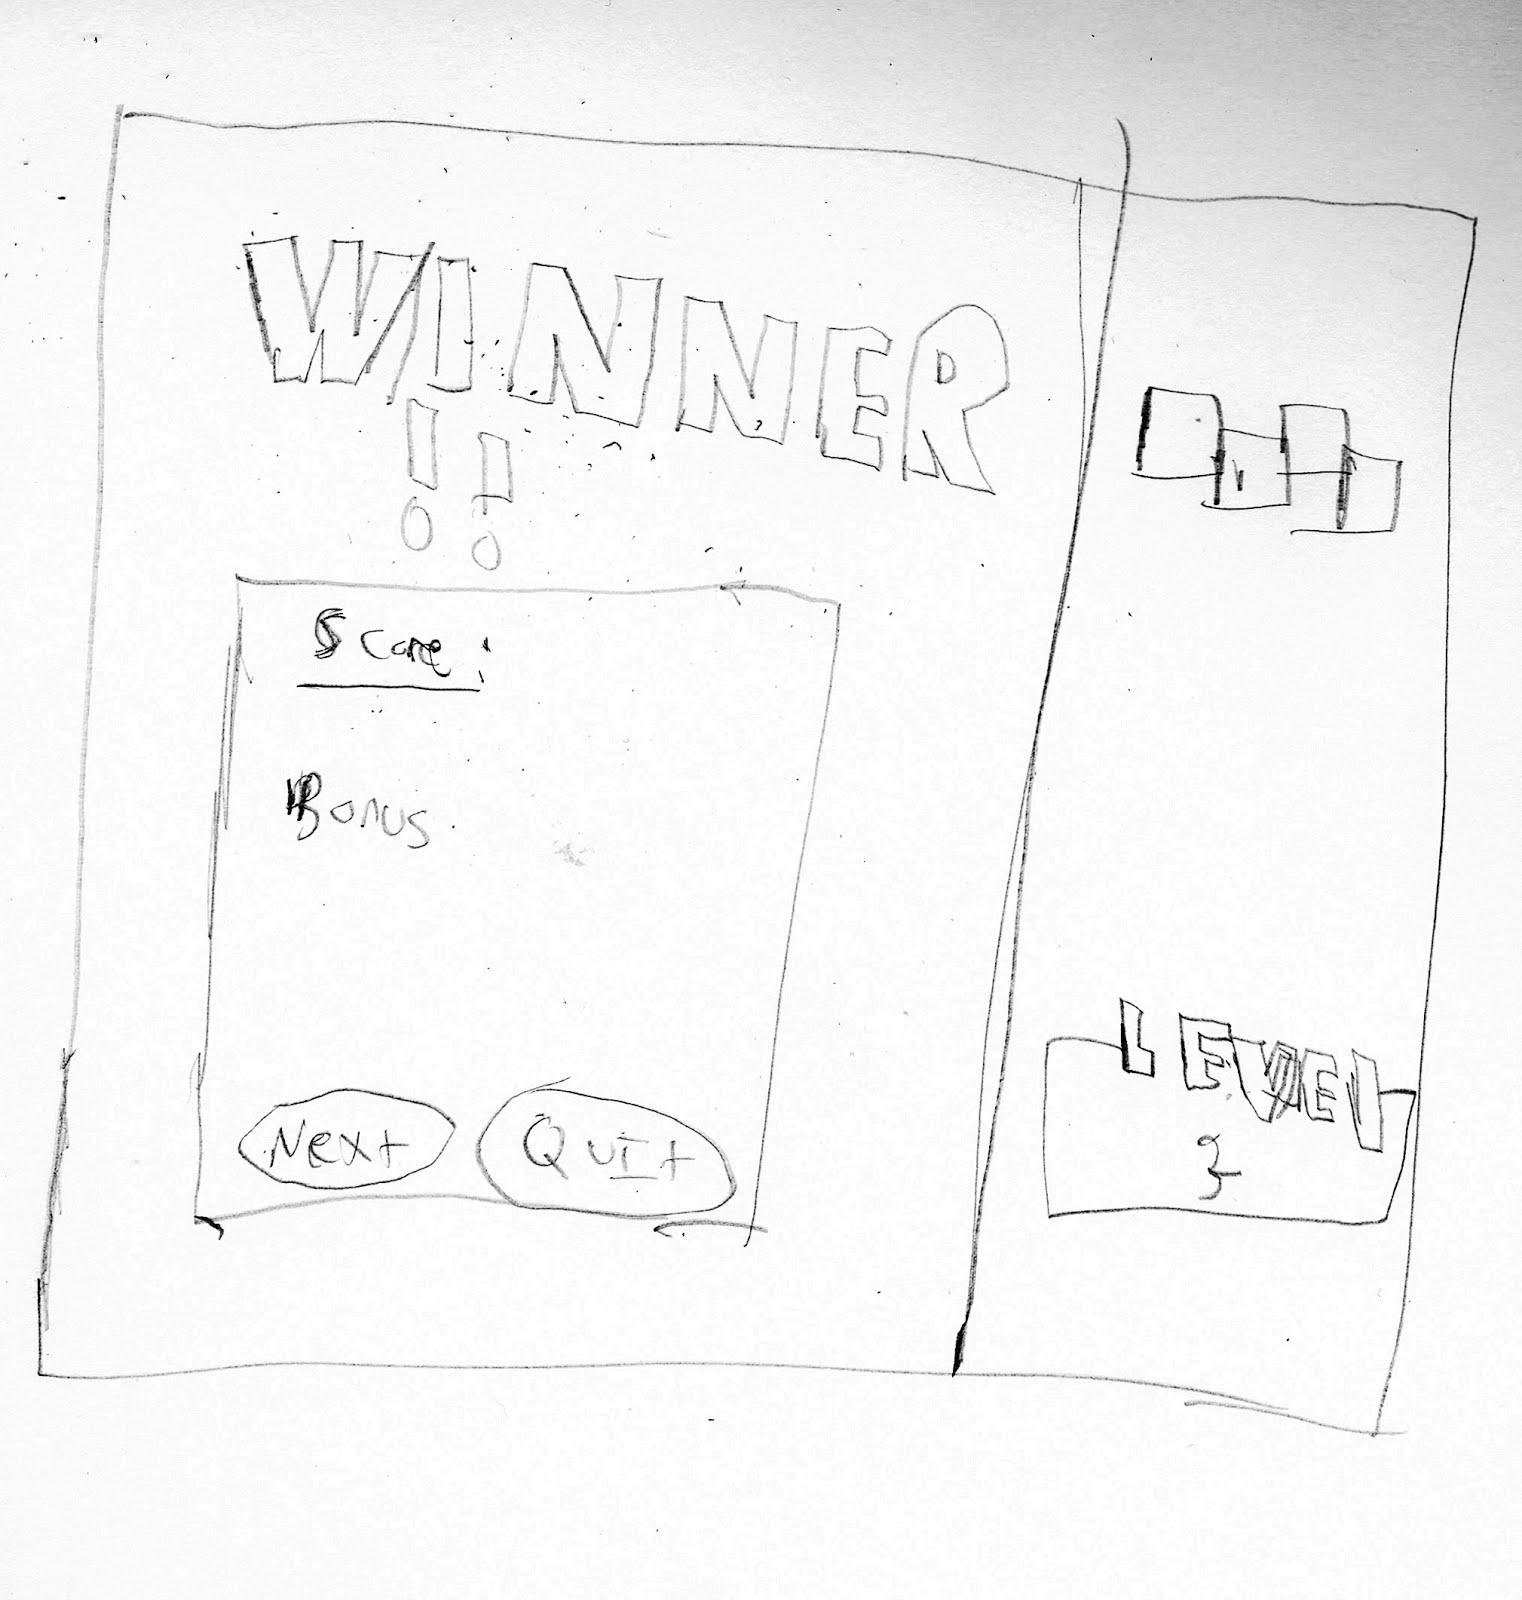 WINNER
!!
Score:
Bonus
Next
Quit
LEVEL